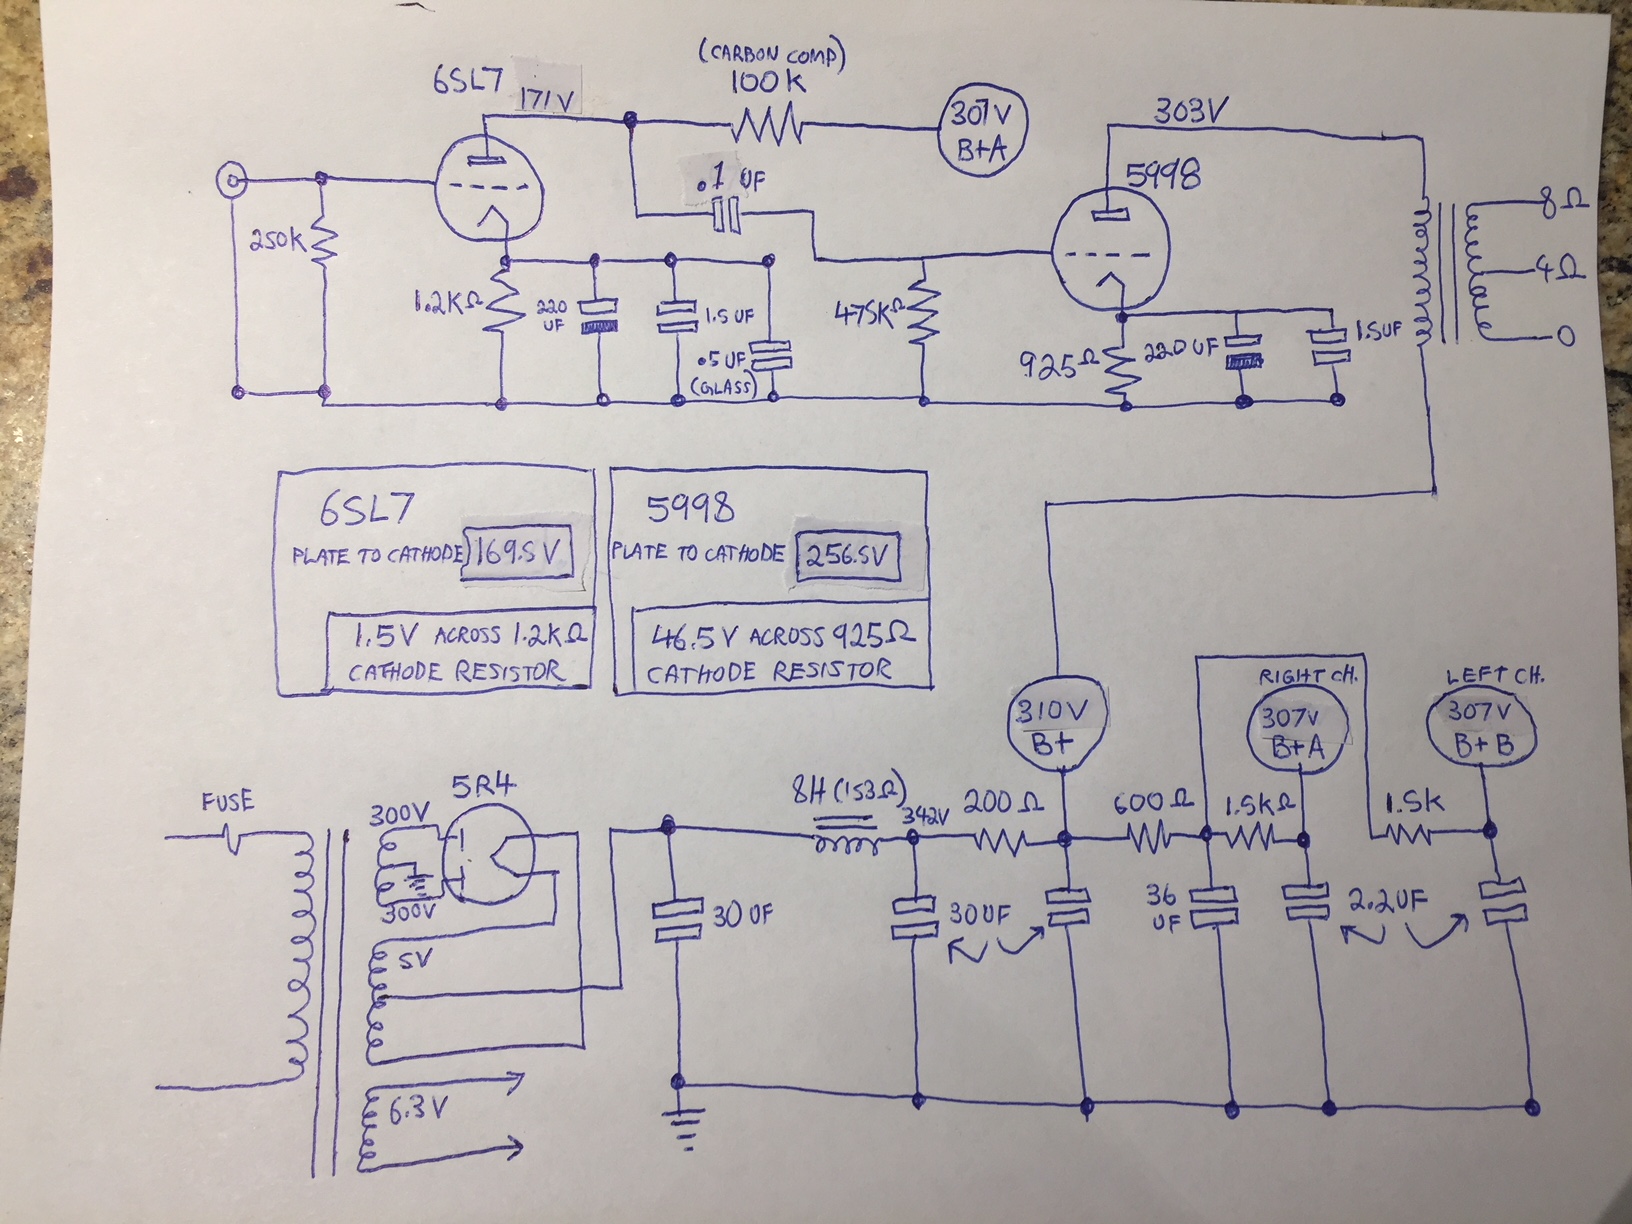 (CARBON COMP)
6SL7
100K
171V
307V
B+A
303V
5998
.1 UF
250K
8Ω
4Ω
0
1.2KΩ
220
UF
1.5 UF
.5 UF
(GLASS)
475KΩ
925Ω
220 UF
1.5UF
6SL7
PLATE TO CATHODE 169.5V
1.5V ACROSS 1.2KΩ
CATHODE RESISTOR
5998
PLATE TO CATHODE 256.5V
46.5V ACROSS 925Ω
CATHODE RESISTOR
310V
B+
RIGHT CH.
307V
B+A
LEFT CH.
307V
B+B
FUSE
300V
5R4
300V
5V
6.3V
8H (153Ω)
342V
200Ω
600Ω
1.5KΩ
1.5K
30UF
30UF
36
UF
2.2UF